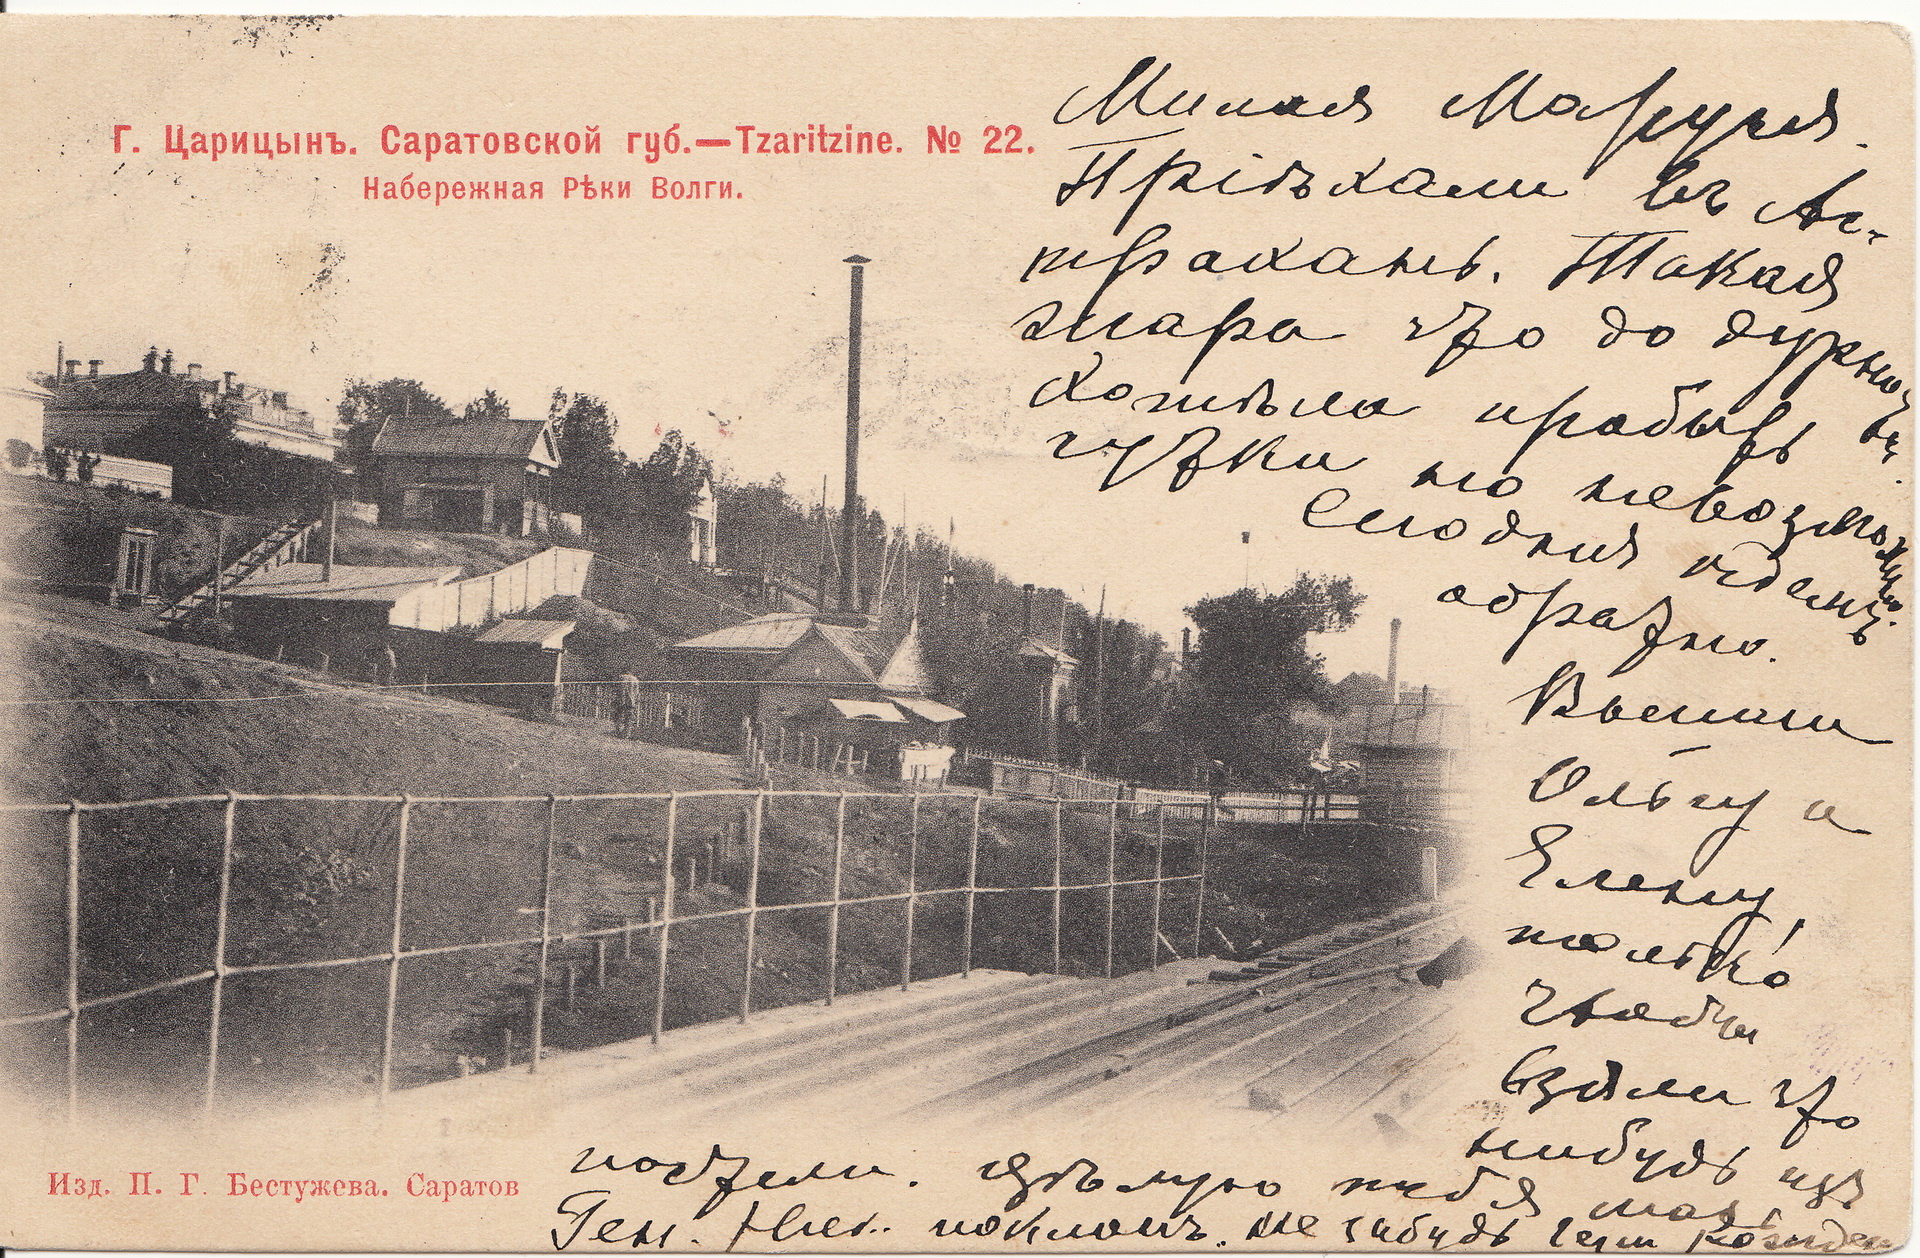 Г. Царицынъ. Саратовской губ.—Tzaritzine. № 22.
Набережная Рѣки Волги.
Милая Маруся.
Пріѣхали въ Ас-
трахань. Такая
жара что до дурноты
хотѣла пробыть
сутки но невозможно.
Сегодня ѣдемъ
обратно.
Вышли
Ольгу и
Елену,
только
чтобы
взяли что
нибудь изъ
постели. Цѣлую тебя
Ген. Ник. поклонъ. Не забудь
Изд. П. Г. Бестужева. Саратов